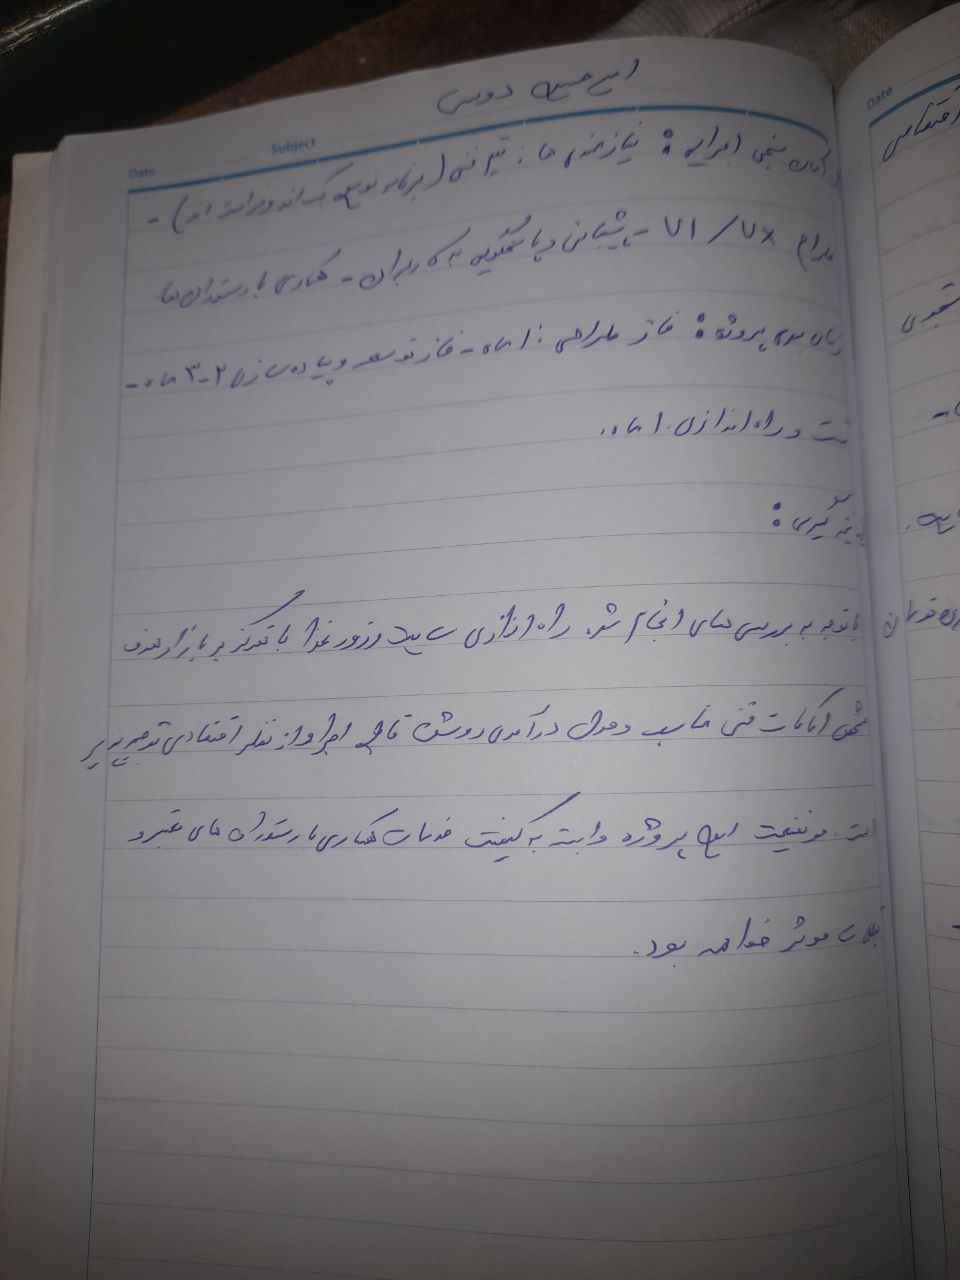 امیرحسین دوستی
Date Subject
امکان سنجی اجرایی: نیازمندی ها: تیم فنی (برنامه نویس بک اند و فرانت اند) -
طراح UI/UX - پشتیبانی و پاسخگویی به کاربران - همکاری با رستوران ها.
زمان بندی پروژه: فاز طراحی: 1 ماه - فاز توسعه و پیاده سازی 2-3 ماه -
تست و راه اندازی: 1 ماه.
نتیجه گیری:
با توجه به بررسی های انجام شده، راه اندازی سایت رزرو غذا با تمرکز بر بازار هدف
مشخص امکانات فنی مناسب و مدل درآمدی روشن قابل اجرا و از نظر اقتصادی توجیه پذیر
است. موفقیت این پروژه وابسته به کیفیت خدمات همکاری با رستوران های معتبر و
تبلیغات موثر خواهد بود.
Date